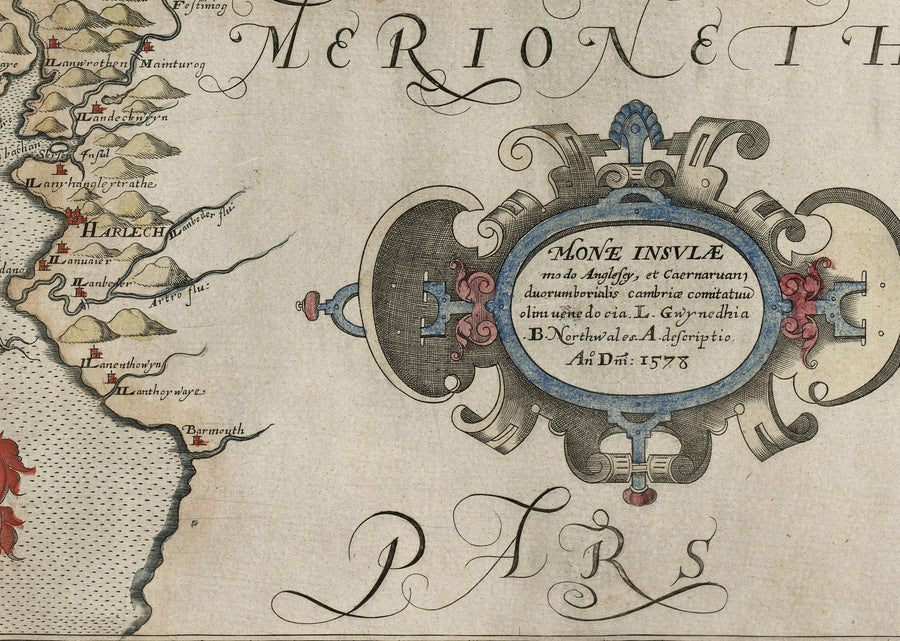 Festiniog
MERIONETH
Llanwrothen
Mainturog
Llandeckwyn
Insul
Llanyhangleytrathe
HARLECH
Llanbeder flu:
Llanuaier
Llanbeder
Artro flu:
MONÆ INSVLÆ
modo Anglesey, et Caernaruan;
duorumborialis cambriæ comitatuu
olim uenedocia. L. Gwynedhia
.B. Northwales. A. descriptio,
An̊ Dni: 1578
Llanenthowyn
Llanthoywaye
Barmouth
PARS